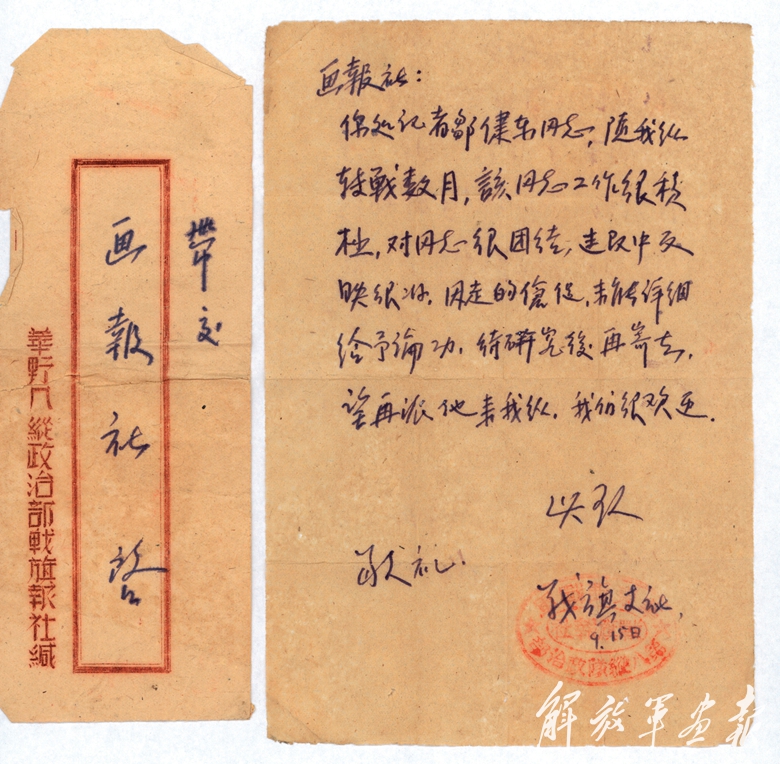 帶交
画報社啓
華野八縱政治部戰旗報社緘
画報社：
你处记者鄒健东同志，随我纵
转戰数月，該同志工作很积
极，对同志很团结，连队中反
映很好，因走的倉促，未能详细
给予論功，待研究後再寄去，
望再派他来我纵，我们很欢迎.
此致
敬礼.
战旗支社，
9.15日
解放军画报